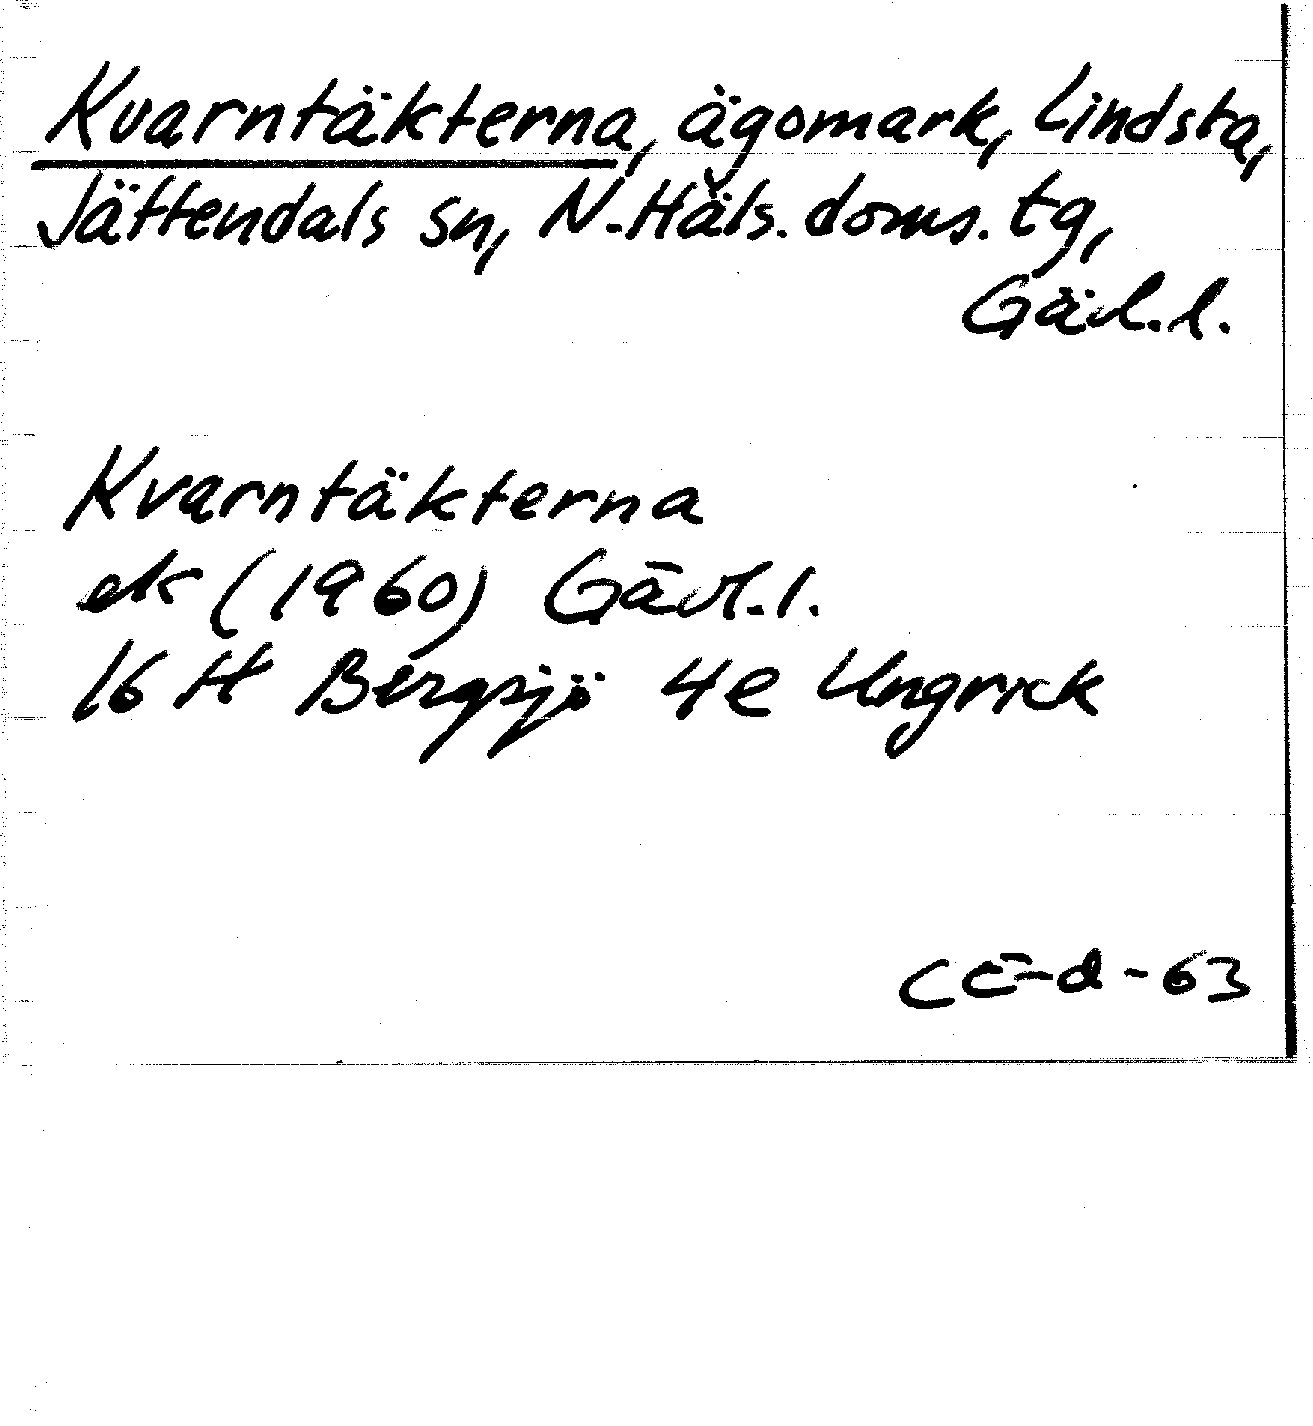 Kvarntäkterna, ägomark, Lindsta,
Jättendals sn, N. Häls. doms. tg,
Gävl. l.
Kvarntäkterna
ek (1960) Gävl. l.
16 H Bergsjö 4e Ungvick
CE-d-63